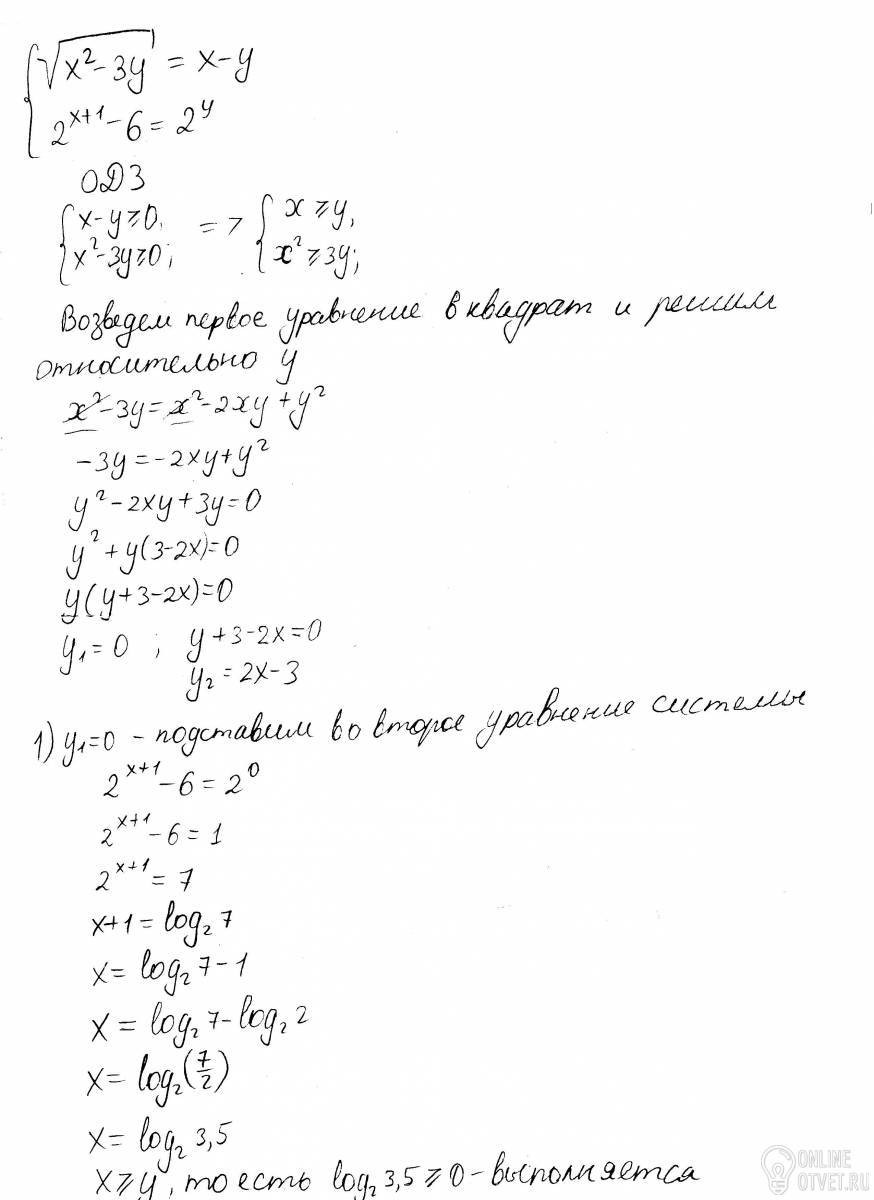 √(x²-3y) = x-y
2^(x+1) - 6 = 2^y
ОДЗ
{ x-y≥0, => { x≥y,
{ x²-3y≥0; { x²≥3y;
Возведем первое уравнение в квадрат и решим
относительно y
x²-3y=x²-2xy+y²
-3y=-2xy+y²
y²-2xy+3y=0
y²+y(3-2x)=0
y(y+3-2x)=0
y₁=0 ; y+3-2x=0
y₂=2x-3
1) y₁=0 - подставим во второе уравнение системы
2^(x+1) - 6 = 2^0
2^(x+1) - 6 = 1
2^(x+1) = 7
x+1 = log₂ 7
x = log₂ 7 - 1
x = log₂ 7 - log₂ 2
x = log₂ (7/2)
x = log₂ 3,5
x≥y, то есть log₂ 3,5 ≥ 0 - выполняется
ONLINE
OTVET.RU